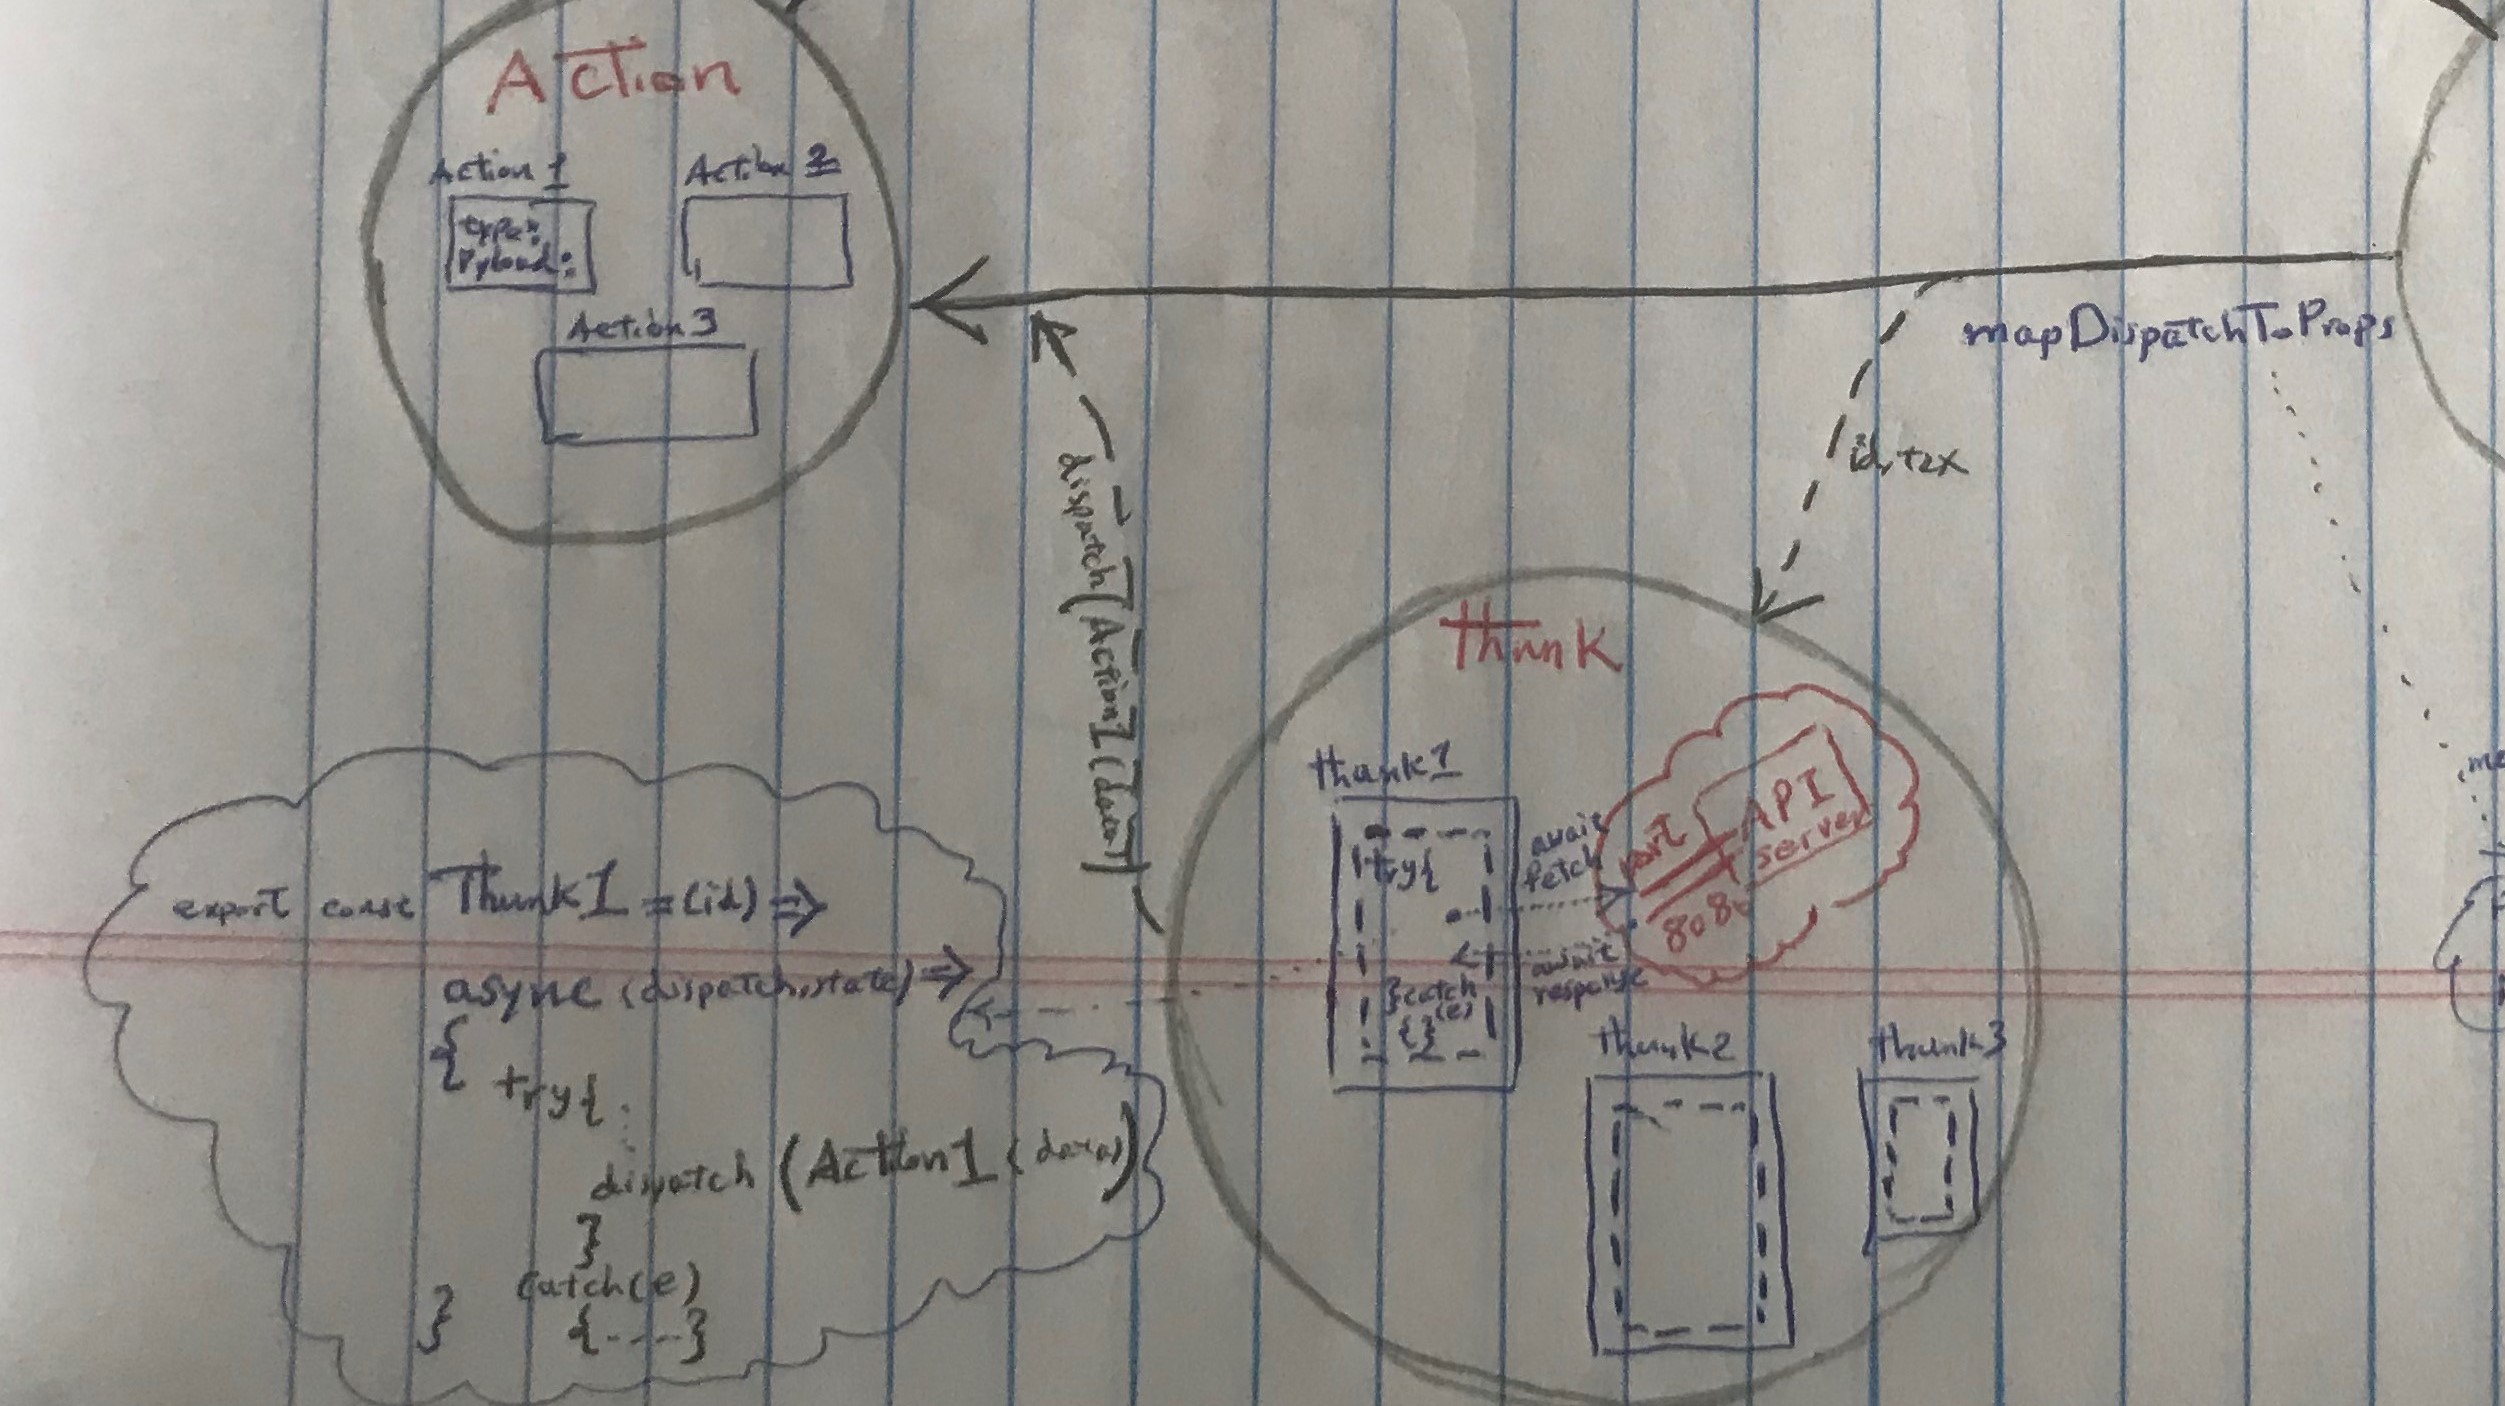 Action
Action 1
type:
Pyload:
Action 2
Action 3
mapDispatchToProps
dispatch(Action1(data))
Thunk
thunk1
try{
}catch
(e)
{}
await
fetch
await
response
port
8080
API
server
thunk2
thunk3
export const Thunk1 = (id) =>
async (dispatch, state) =>
{
try{
dispatch (Action1 (data)
}
catch(e)
}
{----}